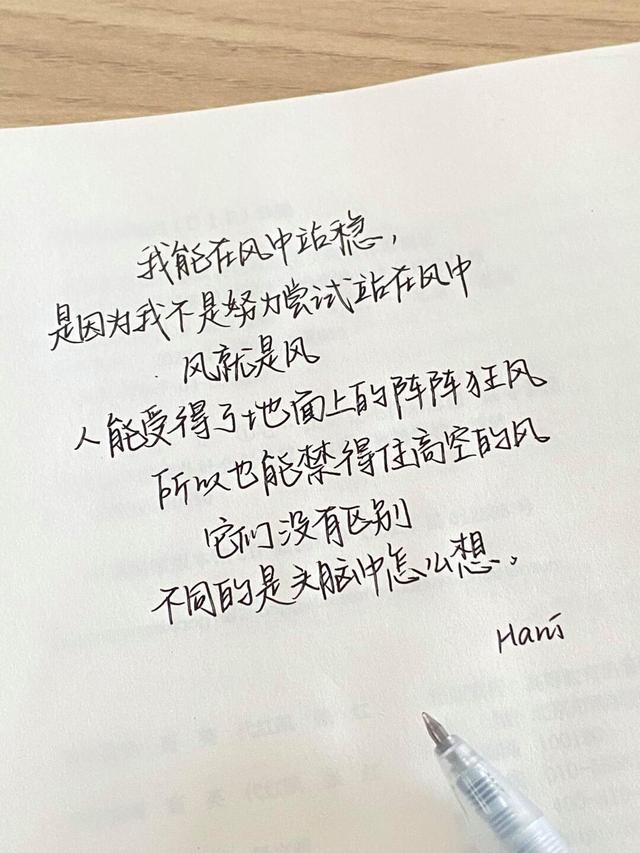 我能在风中站稳，
是因为我不是努力尝试站在风中
风就是风
人能受得了地面上的阵阵狂风
所以也能禁得住高空的风
它们没有区别
不同的是头脑中怎么想。